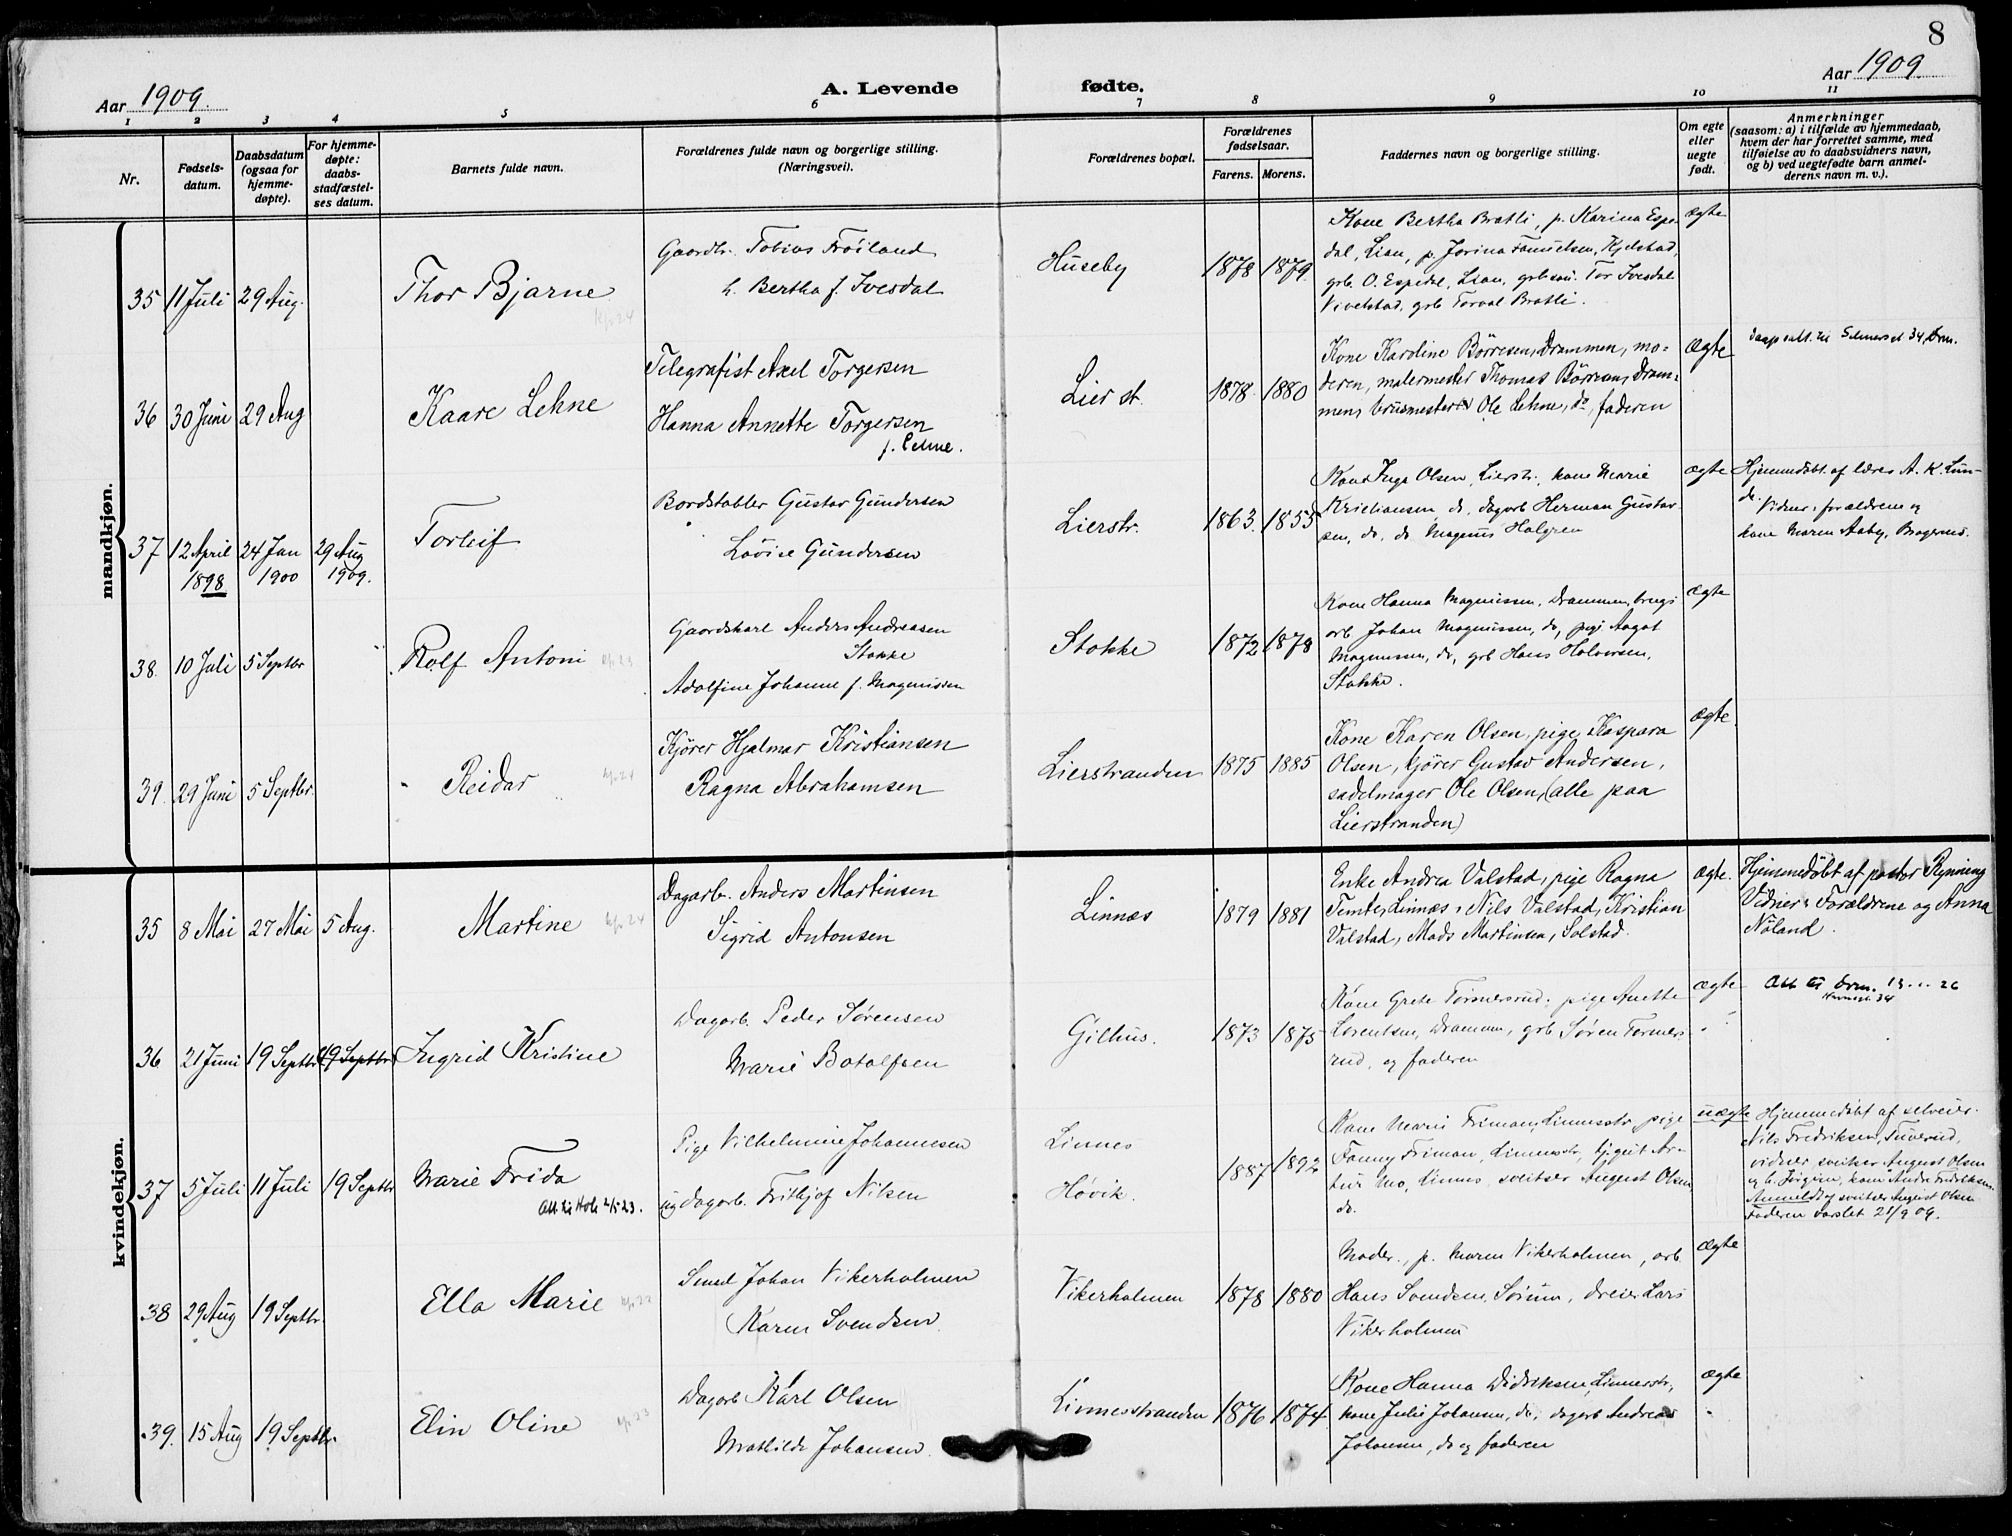 8
Aar 1909.
A. Levende fødte.
Aar 1909
1 2 3 4 5 6 7 8 9 10 11
Nr.
Fødsels-
datum.
Daabsdatum
(ogsaa for
hjemme-
døpte).
For hjemme-
døpte:
daabs-
stadfæstel-
ses datum.
Barnets fulde navn.
Forældrenes fulde navn og borgerlige stilling.
(Næringsvei).
Forældrenes bopæl.
Forældrenes
fødselsaar.
Farens. Morens.
Faddernes navn og borgerlige stilling.
Om egte
eller
uegte
født.
Anmerkninger
(saasom: a) i tilfælde av hjemmedaab,
hvem der har forrettet samme, med
tilføielse av to daabsvidners navn,
og b) ved uegtefødte barn anmel-
derens navn m. v.).
mandkjøn.
35 11 Juli 29 Aug. Thor Bjarne
Gaardbr. Tobias Frøiland
h. Bertha f. Ivesdal
Huseby 1878 1879
Kone Bertha Bratli, p. Karina Espe-
dal, Lian, p. Jorina Kjelstad,
grb. O. Espedal, Lian, Tor Ivesdal
grb Bratli.
ægte
36 30 Juni 29 Aug Kaare Lehne
Telegrafist Axel Torgersen
Hanna Annette Torgersen
f. Lehne.
Lier st. 1878 1880
Kone Karoline Børresen, Drammen, mo-
deren, malermester Thomas Børresen, Dram-
men, Ole Lehne, do, faderen
ægte
37 12 April 1898 24 Jan 1900 29 Aug 1909. Torleif
Bordstabler Gustav Gundersen
Lovise Gundersen
Lierstr. 1863. 1855
Kone Inga Olsen, Lierstr., kone Marie
Kristiansen do, dagarb Herman Gustav-
sen, do, do Magnus Holgren
ægte
Hjemmedøbt af lærer A. K. Lun-
de.
Vidner: forældrene og
kone Maren Aaby, Bragernes.
38. 10 Juli 5 Septbr Rolf Antoni
Gaardskarl Anders Andreasen
Stokke
Adolfine Johanne f. Magnussen
Stokke 1872 1878
Kone Hanna Magnussen, Drammen, brugs
arb Johan Magnussen, do, pige Aagot
Magnussen, do, grb Hans Halvorsen,
Stokke.
ægte
39. 29 Juni 5 Septbr. Reidar
Kjører Hjalmar Kristiansen
Ragna Abrahamsen
Lierstranden 1875 1885
Kone Karen Olsen, pige Kaspara
Olsen, kjører Gustav Andersen,
sadelmager Ole Olsen, (alle paa
Lierstranden)
ægte.
kvindekjøn.
35 8 Mai 27 Mai 5 Aug. Martine
Dagarb. Anders Martinsen
Sigrid Antonsen
Linnæs 1879 1881
Enke Andrea Valstad, pige Ragna
Temte, Linnæs, Nils Valstad, Kristian
Valstad, Mads Martinsen, Solstad.
ægte.
Hjemmedøbt af pastor Rynning
Vidner: Forældrene og Anna
Nøland.
36 21 Juni 19 Septbr 19 Septbr Ingrid Kristine
Dagarb. Peder Sørensen
Marie Botolfsen
Gilhus. 1873 1875
Kone Grete Tormersrud, pige Anette
Lorentsen, Drammen, grb Søren Tormers-
rud, og faderen
ægte
37 5 Juli 11 Juli 19 Septbr Marie Frida
Att til Hole 2/5 23.
Pige Vilhelmine Johannesen
ug dagarb. Frithjof Nilsen
Linnes
Høvik.
1887 1892
Kone Marie Friman, Linnesstr, pige
Fanny Friman, Linnesstr, Ar-
tur Mo, Linnes, sveitser August Olsen
do.
uægte
Hjemmedøbt af selveier
Nils Fredriksen, Tuverud,
vidner, sveitser August Olsen
Anmeldt af sveitser August Olsen
Faderen varslet 21/9 09.
38 29 Aug 19 Septbr. Ella Marie
Smed Johan Vikerholmen
Karen Svendsen
Vikerholmen 1878 1880
Moder. p. Maren Vikerholmen, arb
Hans Svendsen, Sørum, dreier Lars
Vikerholmen
Ægte
39. 15 Aug 19 Septbr. Elin Oline
Dagarb Karl Olsen
Mathilde Johansen.
Linnesstranden 1876 1874
Kone Hanna Didriksen, Linnesstr,
kone Julie Johansen, do, dagarb Andreas
Johansen, do og faderen
ægte